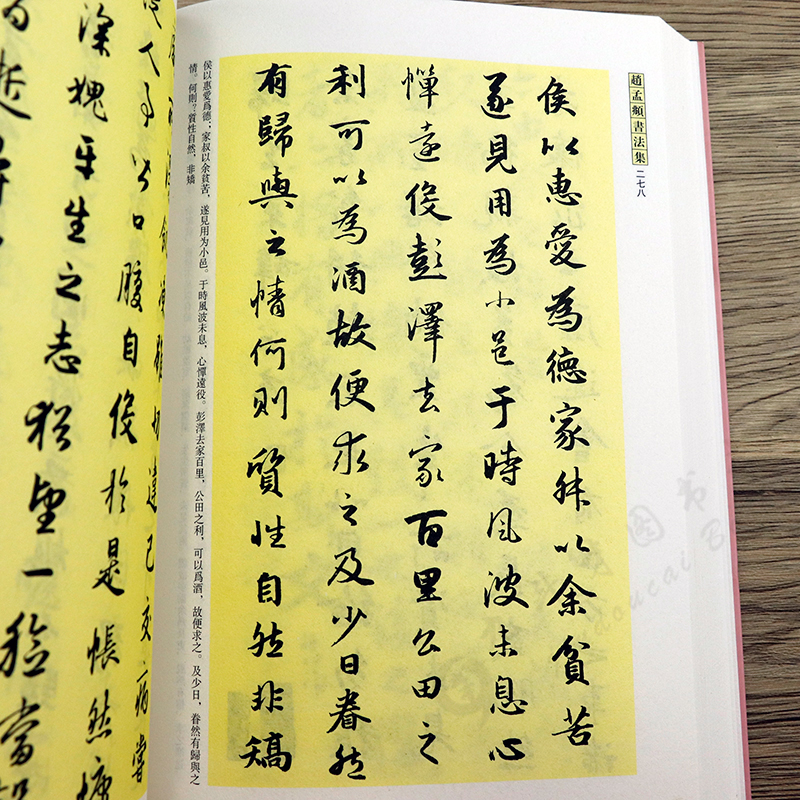 趙孟頫書法集
二七八
侯以惠愛為德家叔以余貧苦
遂見用為小邑于時風波未息心
憚遠役彭澤去家百里公田之
利可以為酒故便求之及少日眷然
有歸與之情何則質性自然非矯
侯以惠愛爲德；家叔以余貧苦，遂見用为小邑。于時風波未息，心憚遠役。彭澤去家百里，公田之利，可以爲酒，故便求之。及少日，眷然有歸與之
情。何則？質性自然，非矯
雖切違己交病嘗
從人事皆口腹自役於是悵然慷
深愧平生之志猶望一稔當